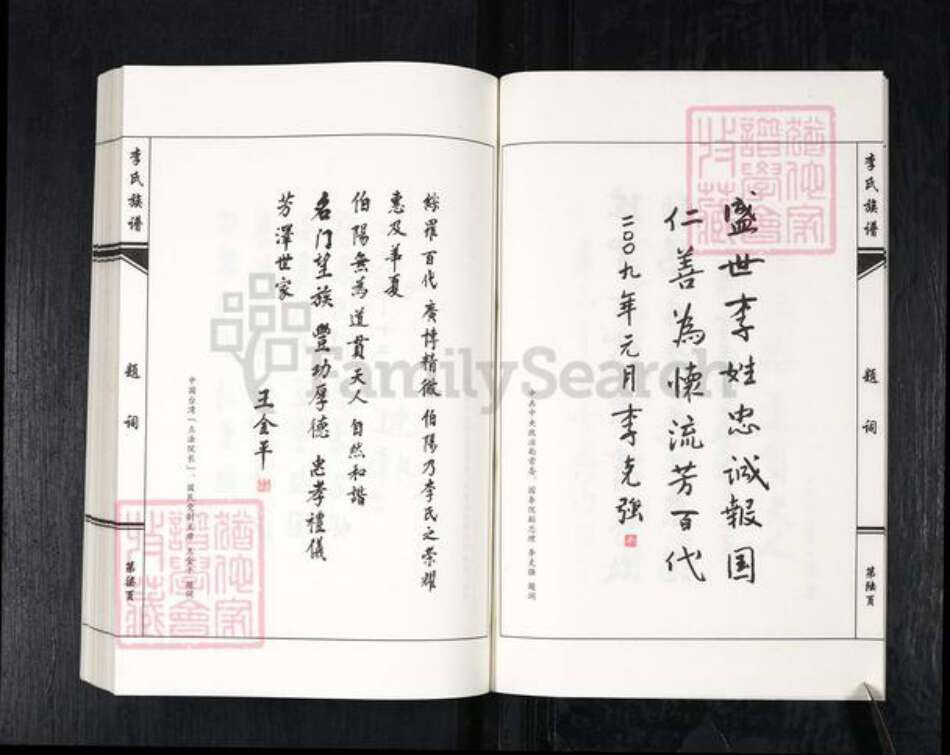 李氏族谱
题词
第陆页
盛世李姓忠诚報国
仁善為懷流芳百代
二〇〇九年元月李克强
中共中央政治局常委、国务院副总理 李克强 题词
綜羅百代 廣博精微 伯陽乃李氏之荣耀
惠及華夏
伯陽無為 道貫天人 自然和諧
名门望族 豐功厚德 忠孝禮儀
芳澤世家
王金平
中国台湾「立法院长」、国民党副主席 王金平 题词
李氏族谱
题词
第柒页
猶他家
譜學會
收藏
猶他家
譜學會
收藏
FamilySearch